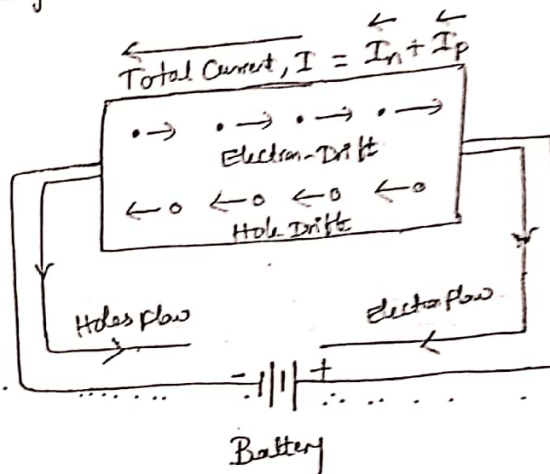 Total Current, I = In + Ip
Electron-Drift
Hole Drift
Holes flow
Electon flow
- +
Battery